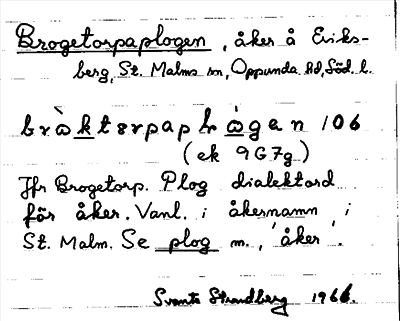 Brogetorpaplogen, åker å Eriks-
berg, St. Malms sn, Oppunda hd, Söd. l.
106
(ek 9G7g)
Jfr Brogetorp. Plog dialektord
för åker. Vanl. i åkernamn i
St. Malm. Se plog m., åker.
Svante Strandberg 1966.